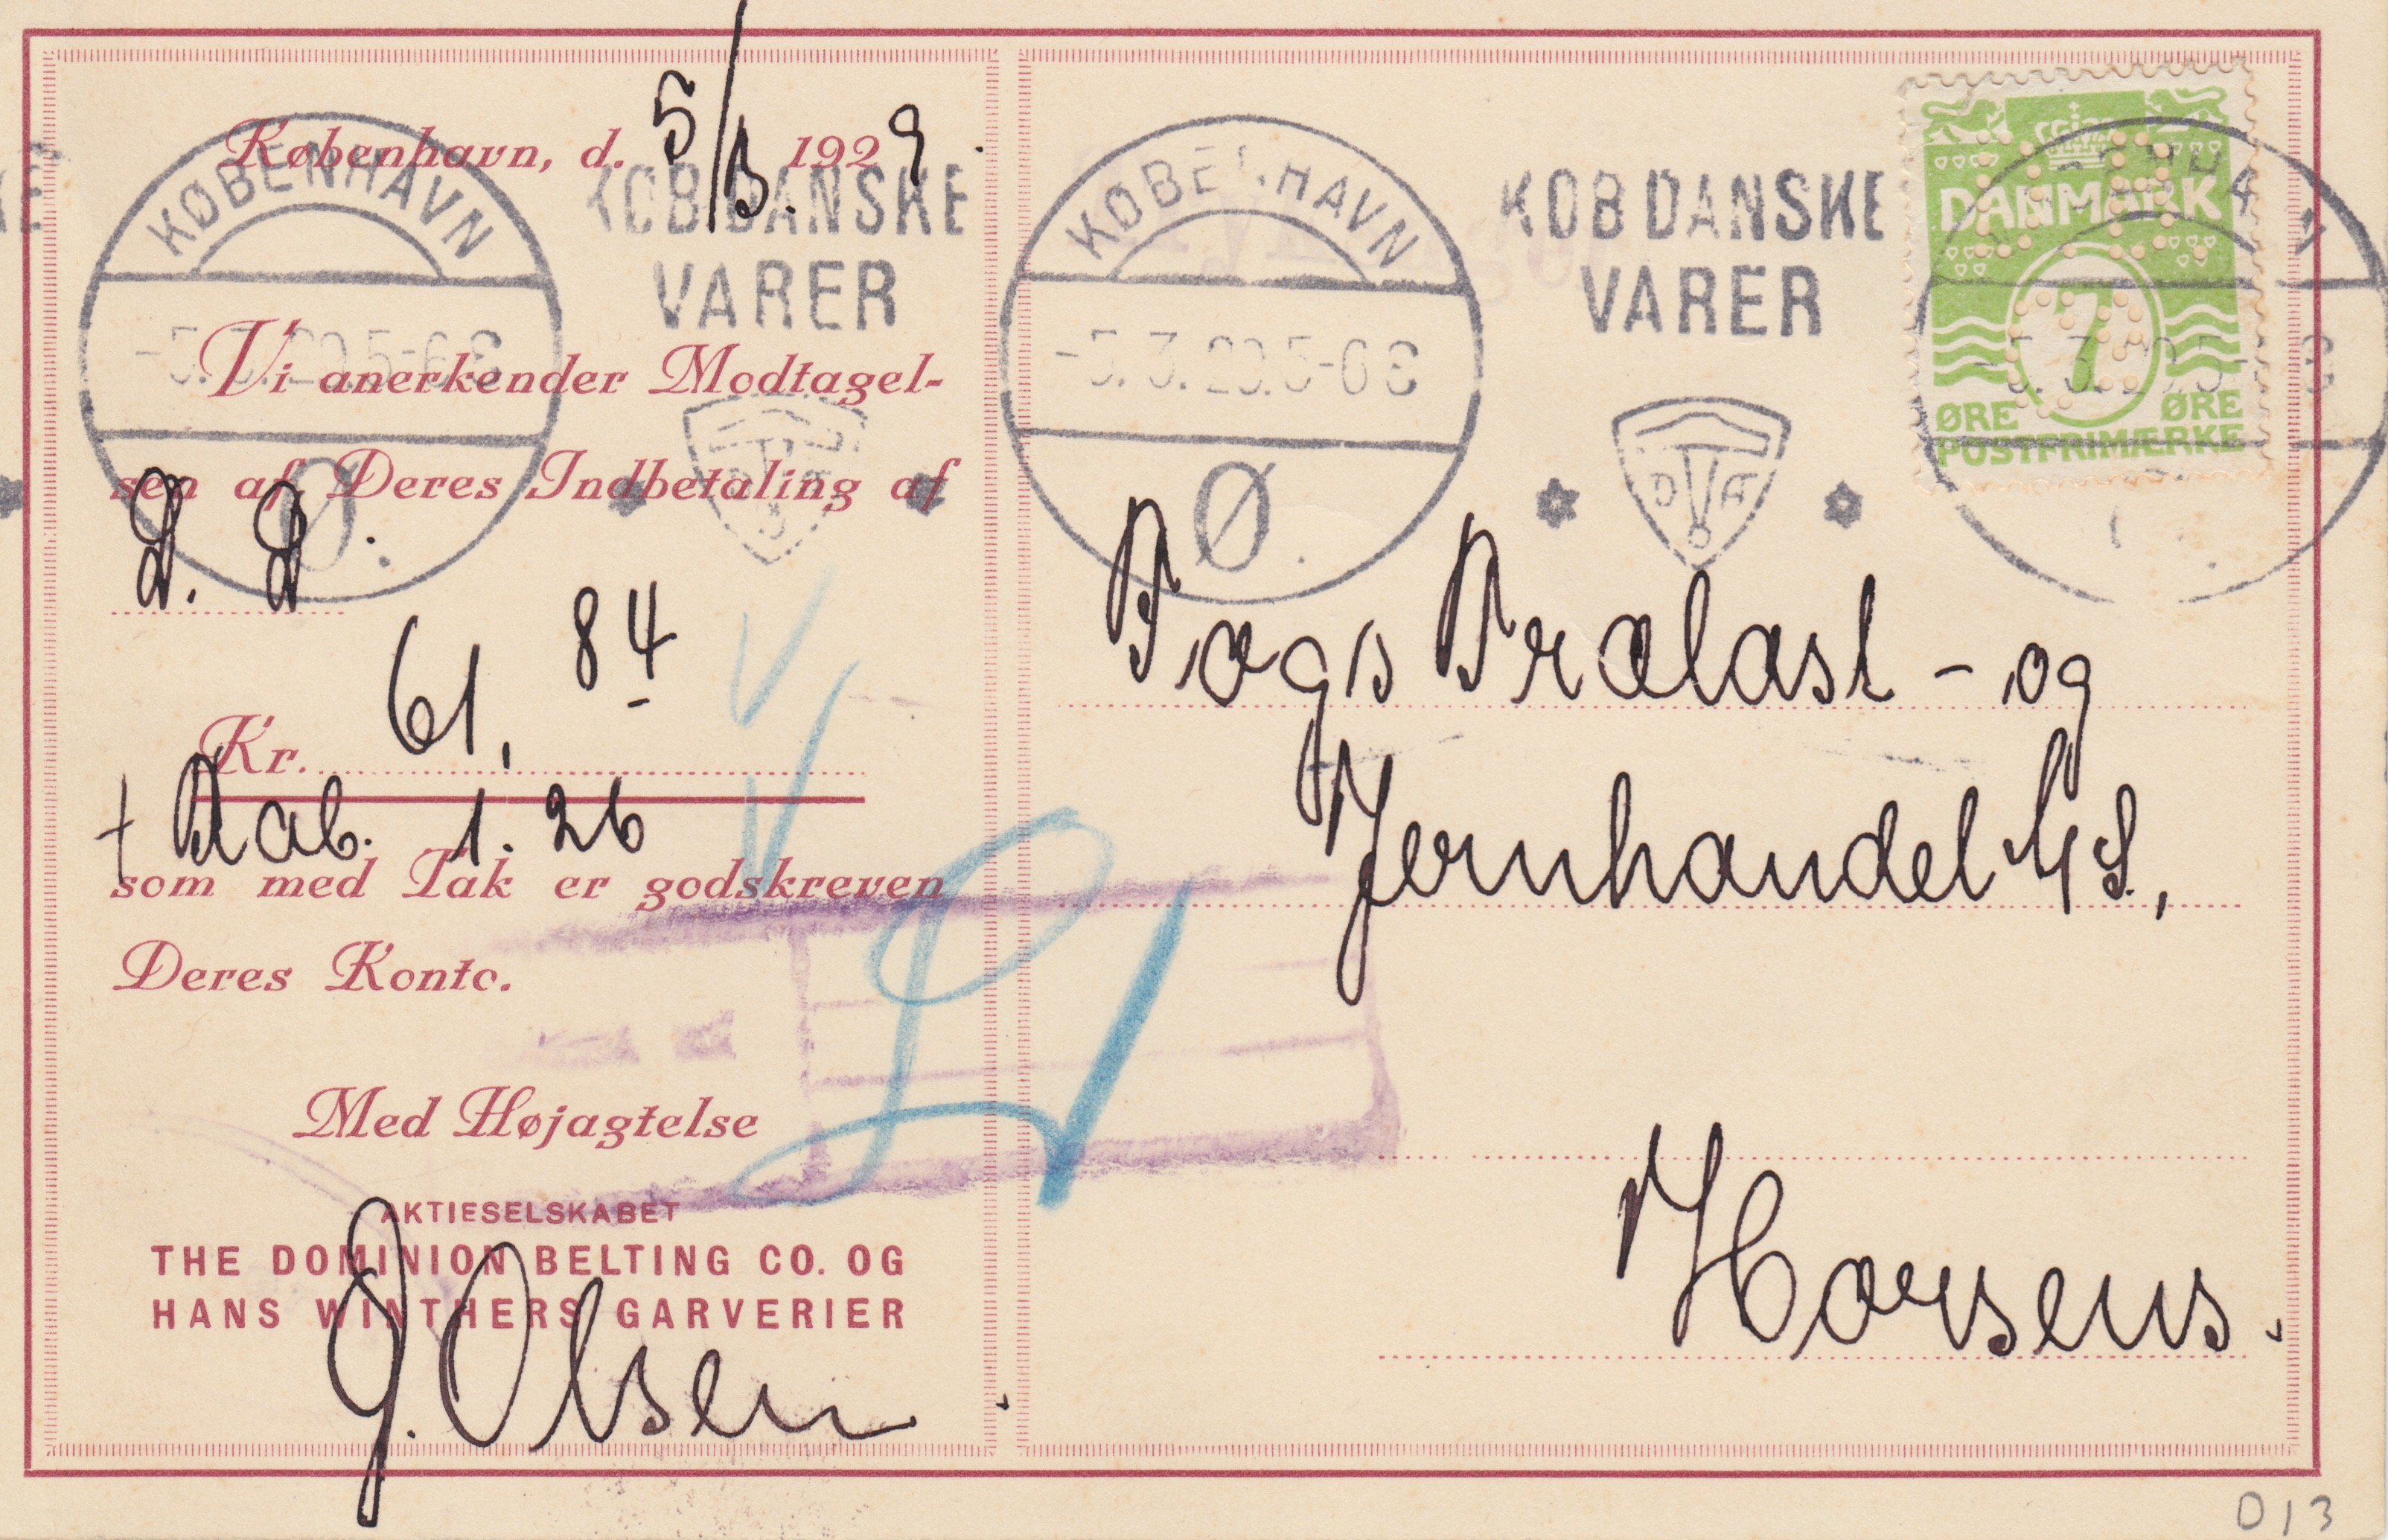 København, d. 5/3. 1929.
Vi anerkender Modtagel-
sen af Deres Indbetaling af
D. D.
Kr. 61,84
+ Rab. 1.26
som med Tak er godskreven
Deres Konto.
Med Højagtelse
AKTIESELSKABET
THE DOMINION BELTING CO. OG
HANS WINTHERS GARVERIER
J. Olsen
KØBENHAVN
KØB DANSKE
VARER
-5.3.29.5-6 E
Ø.
KØBENHAVN
KØB DANSKE
VARER
-5.3.29.5-6 E
Ø.
D A
DANMARK
7
ØRE ØRE
POSTFRIMÆRKE
Trælast- og
Jernhandel A/S,
Horsens.
D13